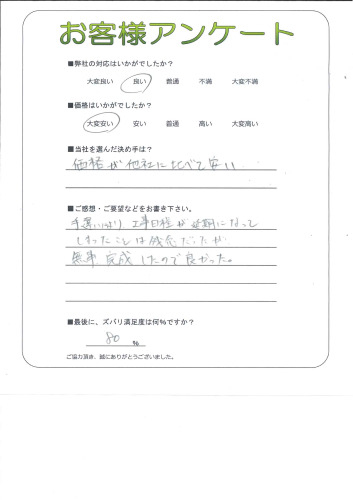 お客様アンケート
■弊社の対応はいかがでしたか？
大変良い 良い 普通 不満 大変不満
■価格はいかがでしたか？
大変安い 安い 普通 高い 大変高い
■当社を選んだ決め手は？
価格が他社に比べて安い
■ご感想・ご要望などをお書き下さい。
手違いがあり 工事日程が延期になって
しまったことは残念だったが
無事 完成したので良かった。
■最後に、ズバリ満足度は何％ですか？
80 ％
ご協力頂き、誠にありがとうございました。